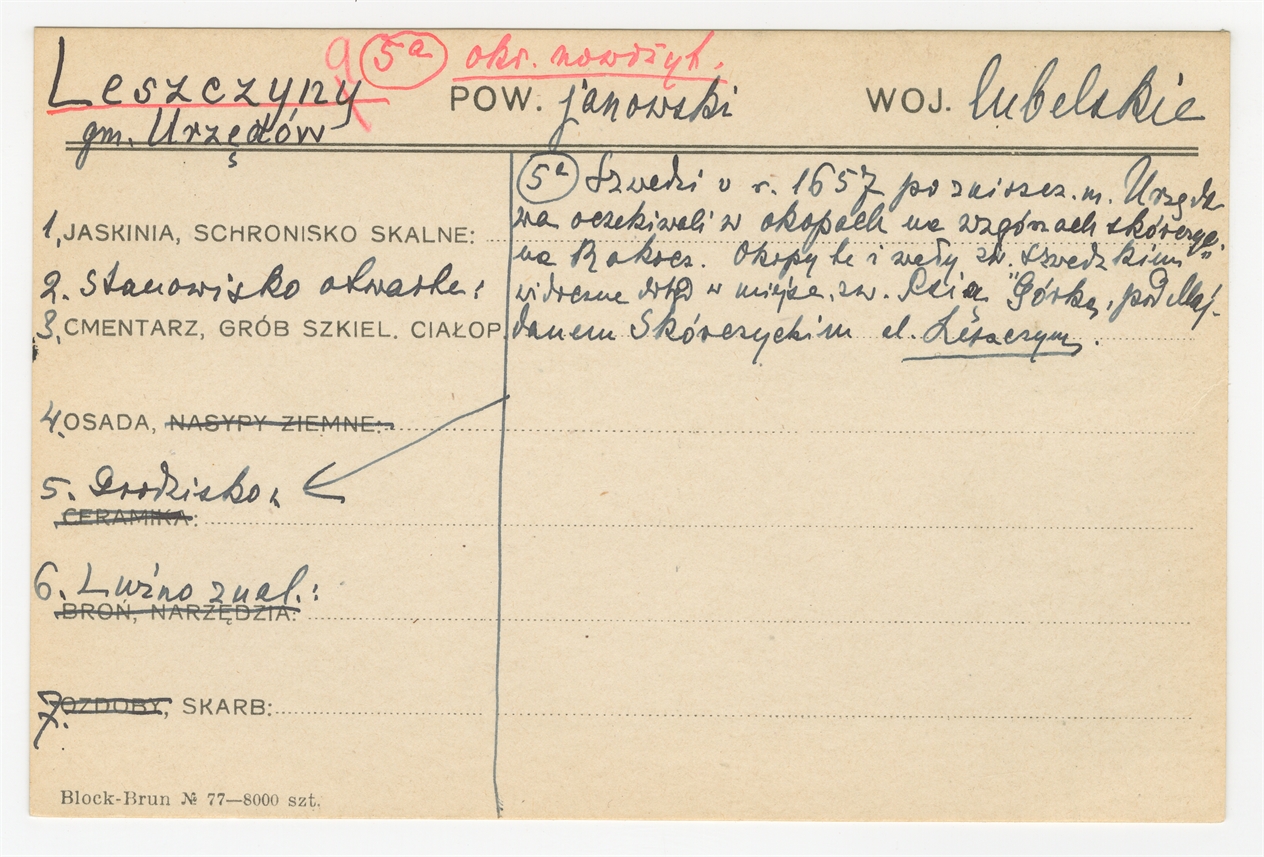 5a okr. nowożyt.
Leszczyny POW. janowski WOJ. lubelskie
gm. Urzędów
5a Szwedzi w r. 1657 po zniszcz. m. Urzędo
wa oczekiwali w okopach na wzgórzach skórczyc.
1, JASKINIA, SCHRONISKO SKALNE:
na Rakocz. Okopy te i wały zw. szwedzkimi"
2. Stanowisko otwarte:
widoczne dotąd w miejsc. zw. Górką, pod Maj-
3, CMENTARZ, GRÓB SZKIEL. CIAŁOP.
danem Skórczyckim al. Leszczyny.
4. OSADA, NASYPY ZIEMNE:
5. Grodzisko
CERAMIKA:
6. Luźno znal.:
BROŃ, NARZĘDZIA:
7. OZDOBY, SKARB:
Block-Brun № 77—8000 szt.